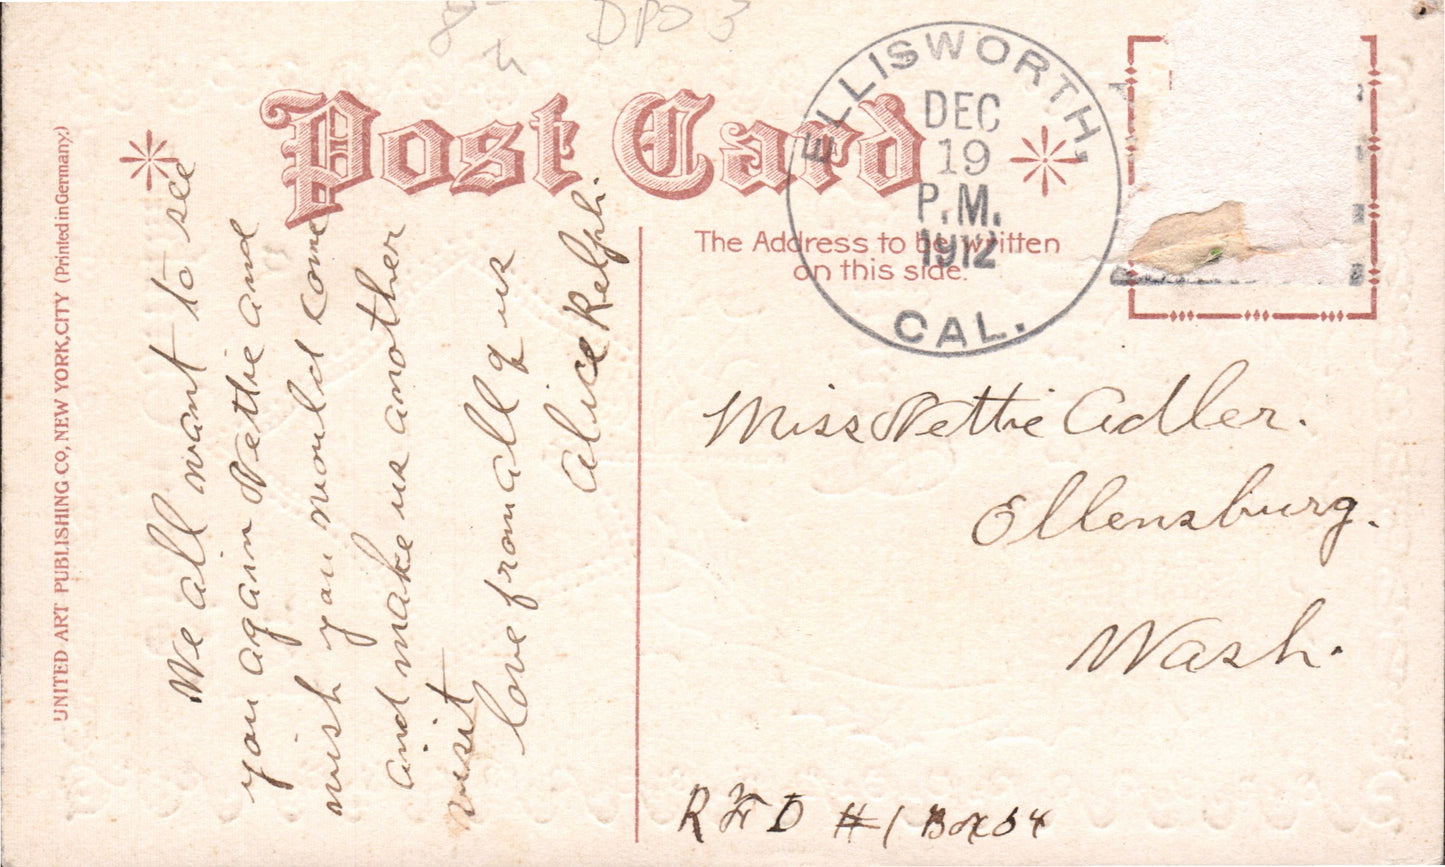 DPO 3
Post Card
ELLISWORTH,
DEC
19
P.M.
1912
CAL.
The Address to be written
on this side.
UNITED ART PUBLISHING CO, NEW YORK, CITY (Printed in Germany.)
We all want to see
you again Nettie and
wish you would come
and make us another
visit
love from all of us
Alice
Miss Nettie Adler.
Ellensburg.
Wash.
RFD #1 Box 54